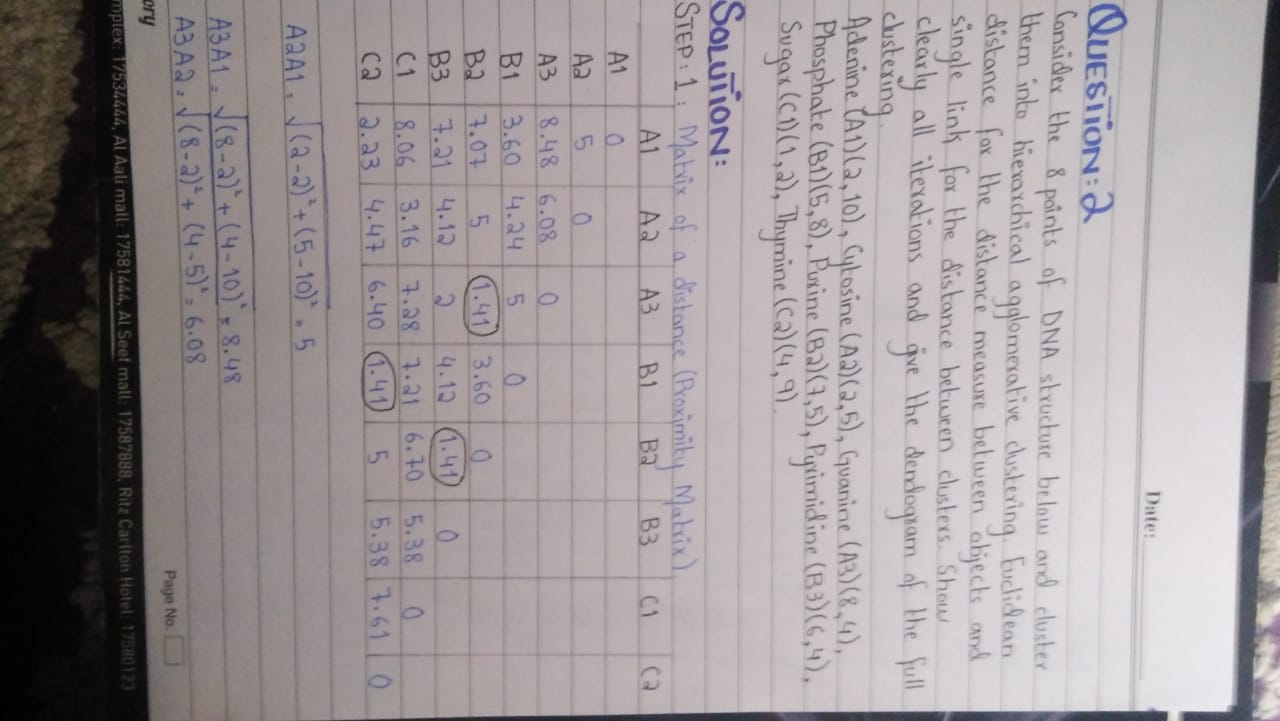 Date:
QUESTION:2
Consider the 8 points of DNA structure below and cluster
them into hierarchical agglomerative clustering. Euclidean
distance for the distance measure between objects and
single link for the distance between clusters. Show
clearly all iterations and give the dendogram of the full
clustering.
Adenine (A1)(2,10), Cytosine (A2)(2,5), Guanine (A3)(8,4),
Phosphate (B1)(5,8), Purine (B2)(7,5), Pyrimidine (B3)(6,4),
Sugar (C1)(1,2), Thymine (C2)(4,9)
SOLUTION:
STEP:1: Matrix of a distance (Proximity Matrix)
A1 A2 A3 B1 B2 B3 C1 C2
A1 0
A2 5 0
A3 8.48 6.08 0
B1 3.60 4.24 5 0
B2 7.07 5 1.41 3.60 0
B3 7.21 4.12 2 4.12 1.41 0
C1 8.06 3.16 7.28 7.21 6.70 5.38 0
C2 2.23 4.47 6.40 1.41 5 5.38 7.61 0
A2A1 = √(2-2)² + (5-10)² = 5
A3A1 = √(8-2)² + (4-10)² = 8.48
A3A2 = √(8-2)² + (4-5)² = 6.08
Page No.
ory
mplex: 17534444, Al Aali mall: 17581444, Al Seef mall: 17587888, Ritz Carlton Hotel: 17580123